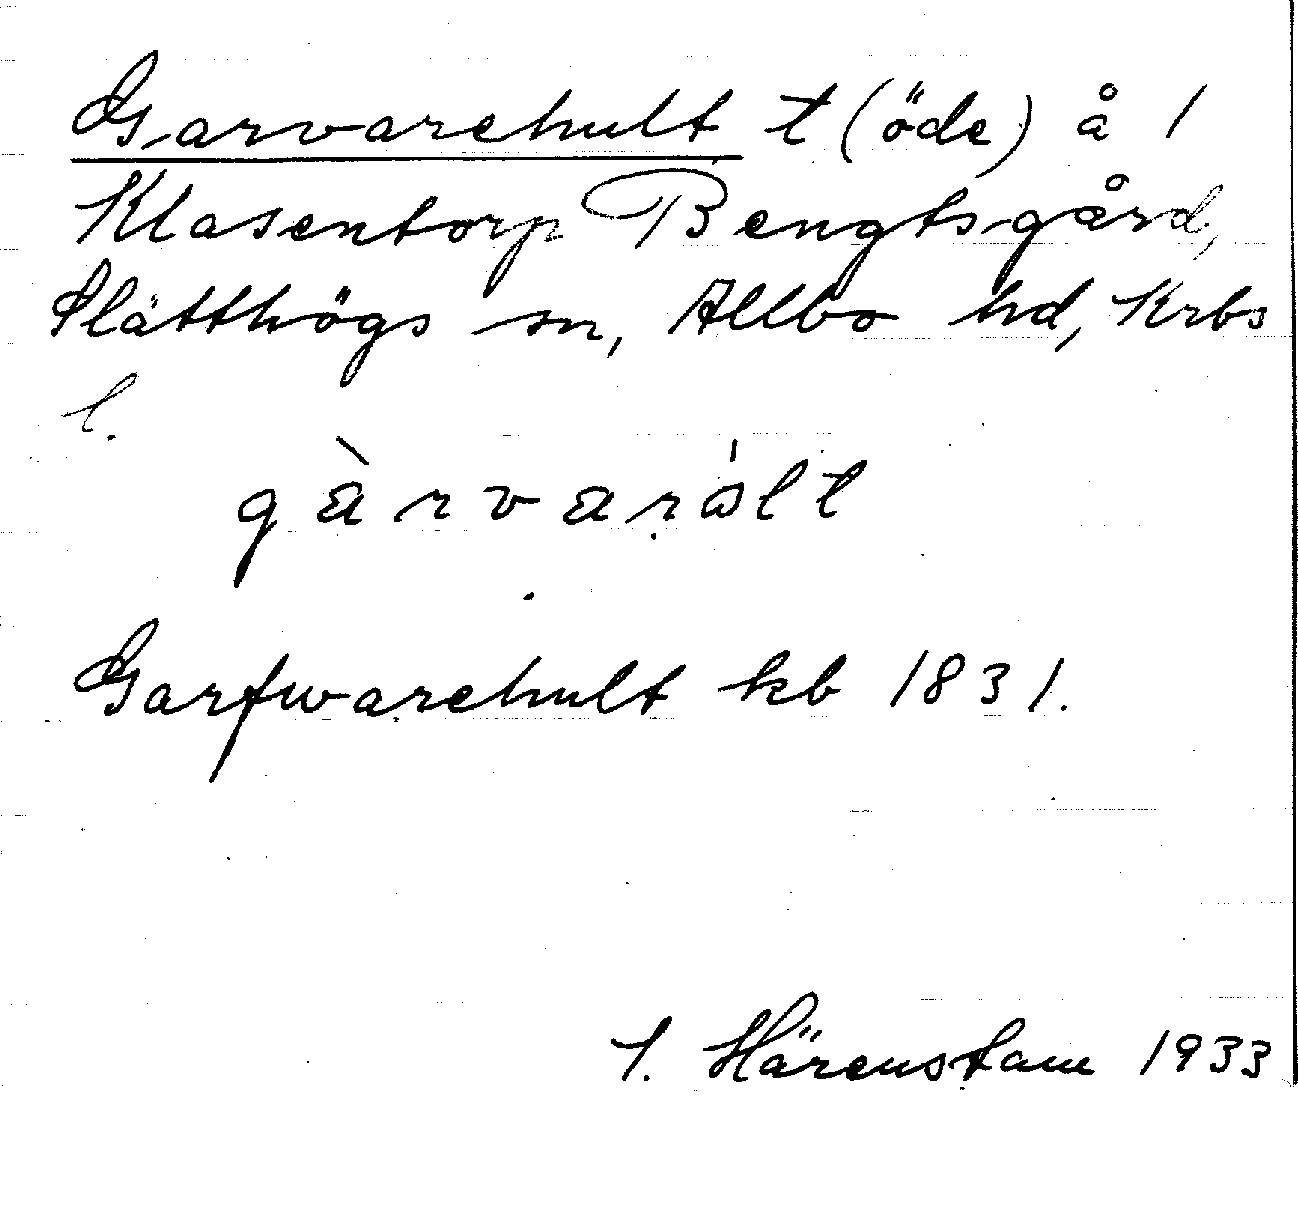 Garvarehult t (öde) å 1
Klasentorp Bengtsgård,
Slätthögs sn, Allbo hd, Krbs
l.
gàrvarólt
Garfwarehult kb 1831.
I. Härenstam 1933